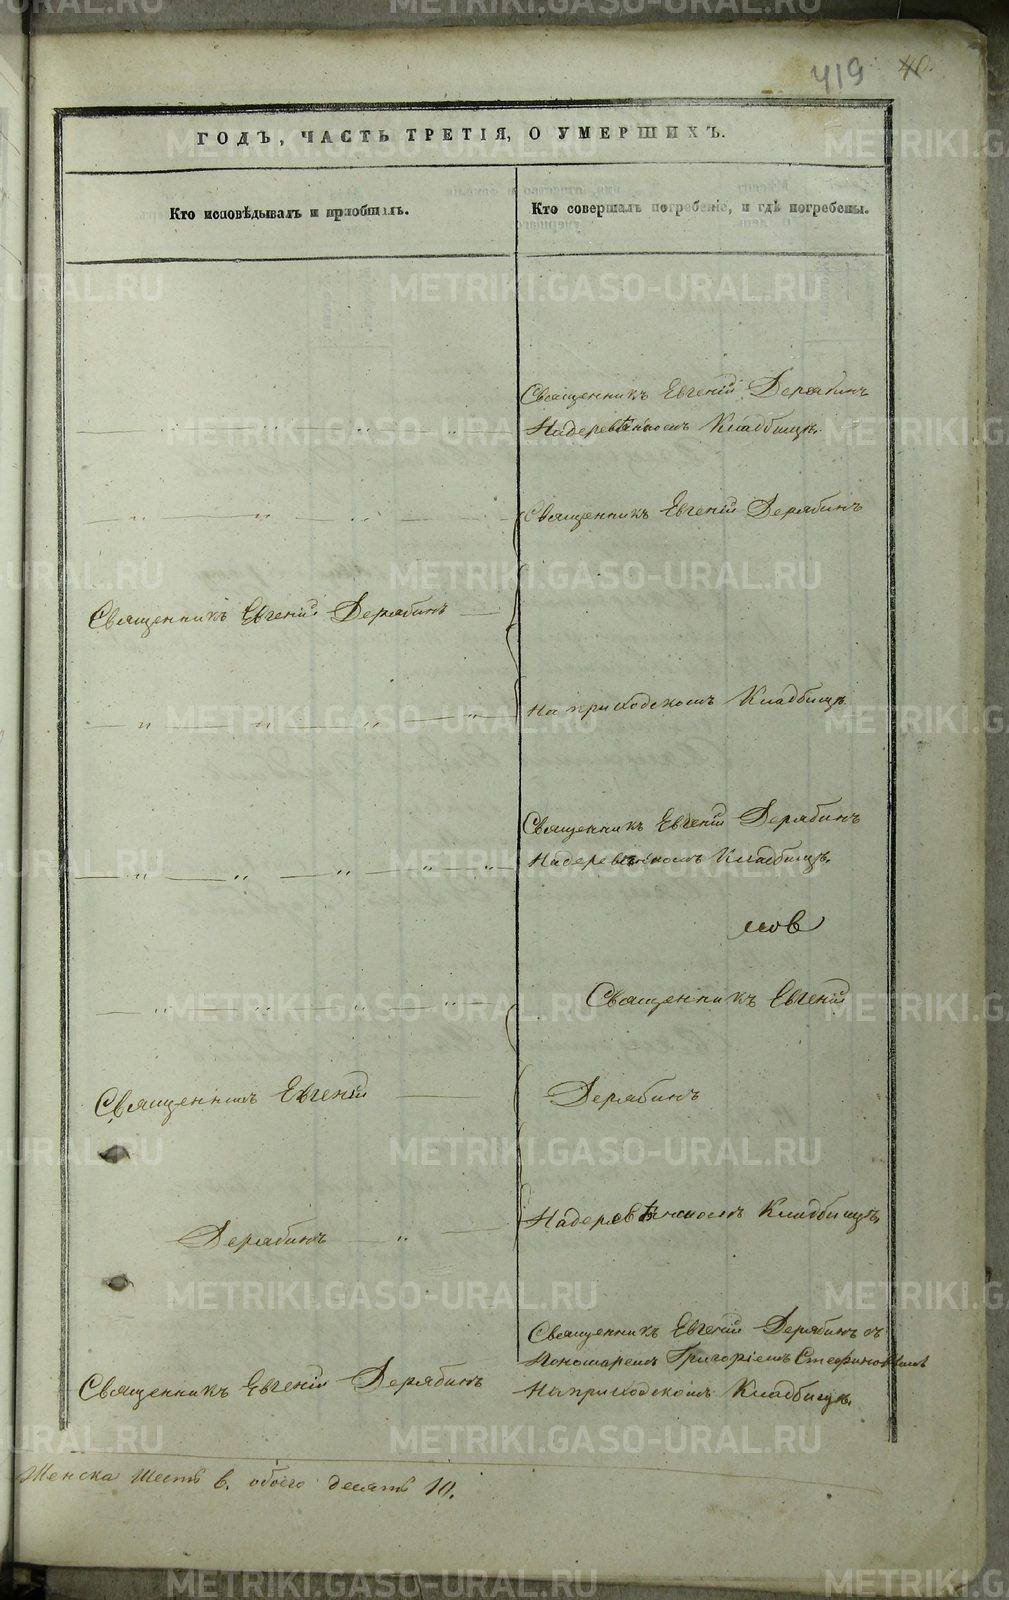 419 40.
ГОДЪ, ЧАСТЬ ТРЕТІЯ, О УМЕРШИХЪ.
Кто исповѣдывалъ и пріобщалъ.
Кто совершалъ погребеніе, и гдѣ погребены.
Священникъ Евгеній Дерябинъ
На деревѣнскомъ Кладбищѣ.
Священникъ Евгеній Дерябинъ
Священникъ Евгеній Дерябинъ
На приходскомъ Кладбищѣ.
Священникъ Евгеній Дерябинъ
На деревѣнскомъ Кладбищѣ.
Священникъ Евгеній
Священникъ Евгеній
Дерябинъ
На деревѣнскомъ Кладбищѣ.
Дерябинъ
Священникъ Евгеній Дерябинъ съ
Пономаремъ Григоріемъ
Священникъ Евгеній Дерябинъ
На приходскомъ Кладбищѣ.
Женска шесть 6. обоего десять 10.
METRIKI.GASO-URAL.RU